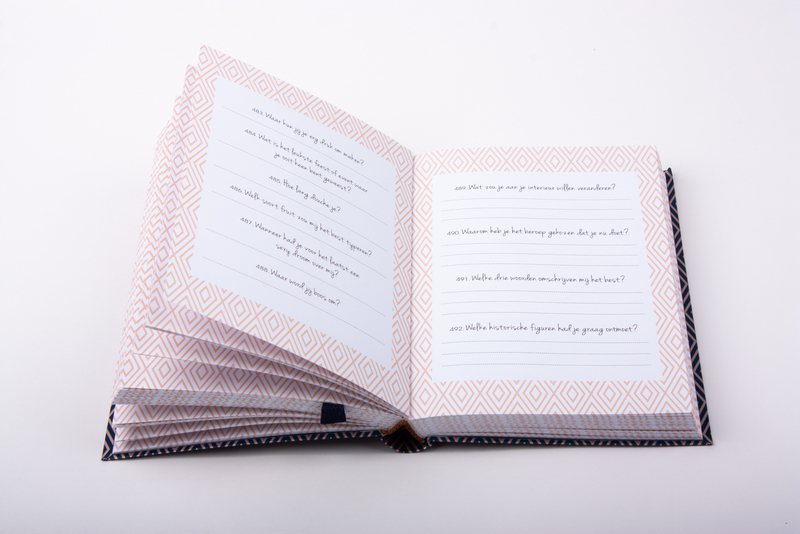 483. Waar kan jij je erg druk om maken?
484. Wat is het leukste feest of event waar
je ooit heen bent geweest?
485. Hoe lang douche je?
486. Welk soort fruit zou mij het best typeren?
487. Wanneer had je voor het laatst een
sexy droom over mij?
488. Waar word jij boos om?
489. Wat zou je aan je interieur willen veranderen?
490. Waarom heb je het beroep gekozen dat je nu doet?
491. Welke drie woorden omschrijven mij het best?
492. Welke historische figuren had je graag ontmoet?